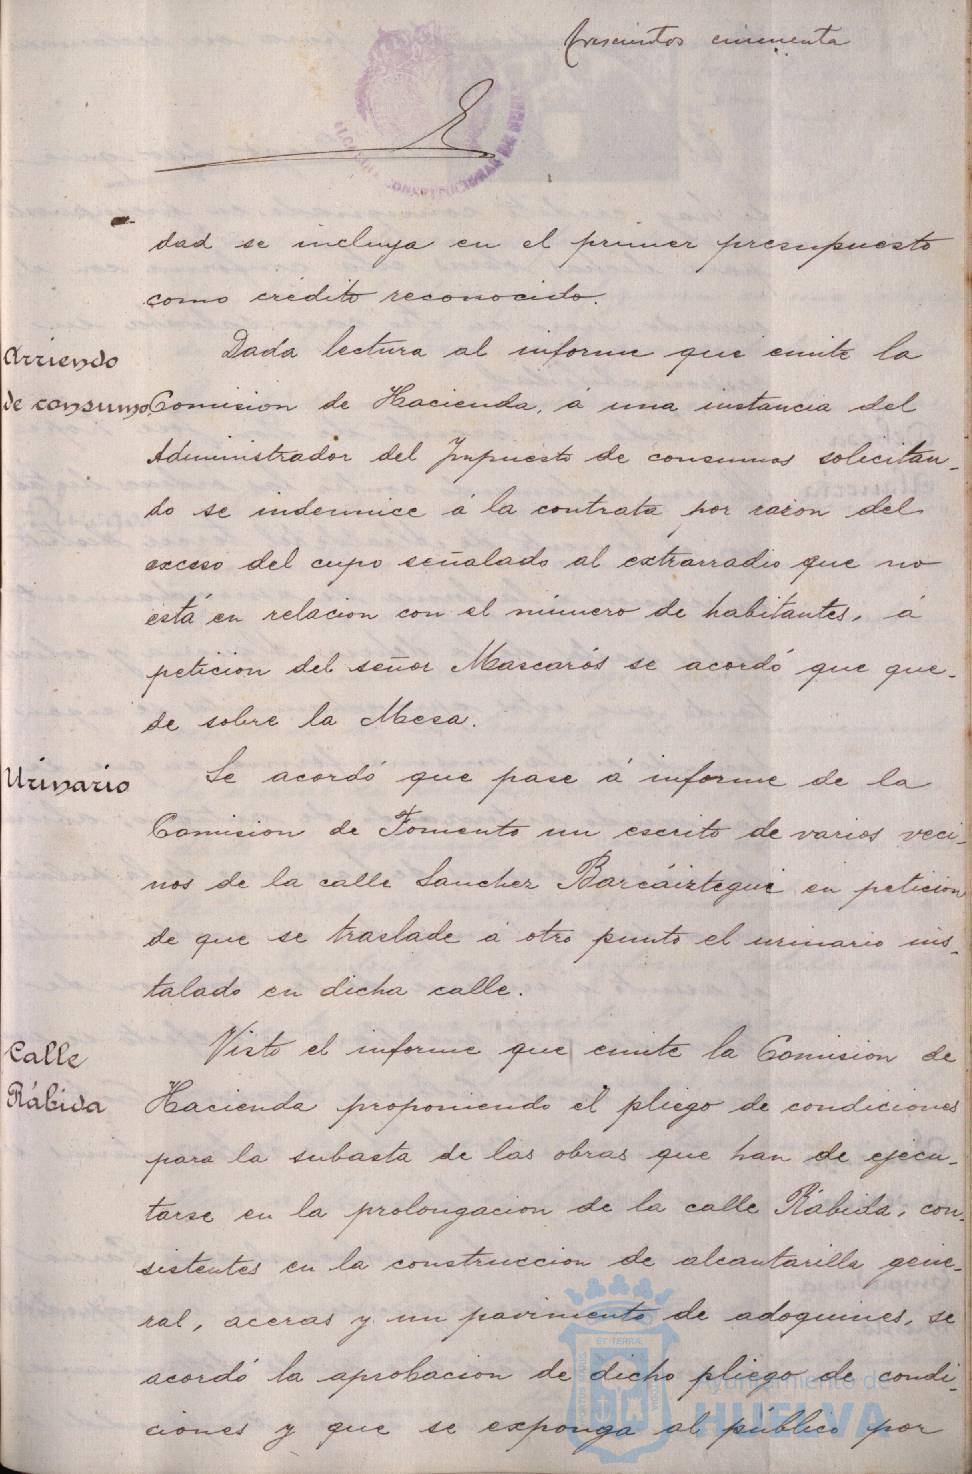 trescientos cincuenta
ALCALDIA CONSTITUCIONAL DE
dad se incluya en el primer presupuesto
como crédito reconocido.
Arriendo
de consumo
Dada lectura al informe que emite la
Comision de Hacienda, á una instancia del
Administrador del Impuesto de consumos solicitan-
do se indemnice á la contrata por razon del
exceso del cupo señalado al extrarradio que no
está en relacion con el número de habitantes, á
peticion del señor Mascarós se acordó que que-
de sobre la Mesa.
Urinario
Se acordó que pase á informe de la
Comision de Fomento un escrito de varios veci-
nos de la calle Sanchez Barcáiztegui en peticion
de que se traslade á otro punto el urinario ins-
talado en dicha calle.
Calle
Rábida
Visto el informe que emite la Comision de
Hacienda proponiendo el pliego de condiciones
para la subasta de las obras que han de ejecu-
tarse en la prolongacion de la calle Rábida, con-
sistentes en la construccion de alcantarilla gene-
ral, aceras y un pavimento de adoquines, se
acordó la aprobacion de dicho pliego de condi-
ciones y que se exponga al público por
Ayuntamiento de
HUELVA